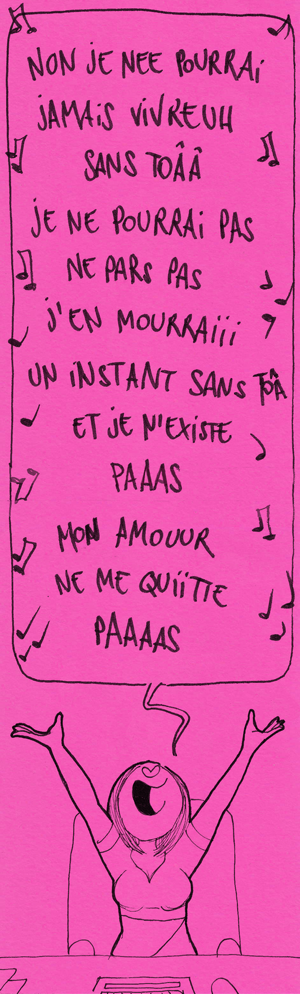 NON JE NEE POURRAi
JAMAiS ViVREUH
SANS TOÂÂ
JE NE POURRAi PAS
NE PARS PAS
J'EN MOURRAiii
UN iNSTANT SANS TOÂ
ET JE N'EXiSTE
PAAAS
MON AMOUUR
NE ME QUiiTTE
PAAAAS